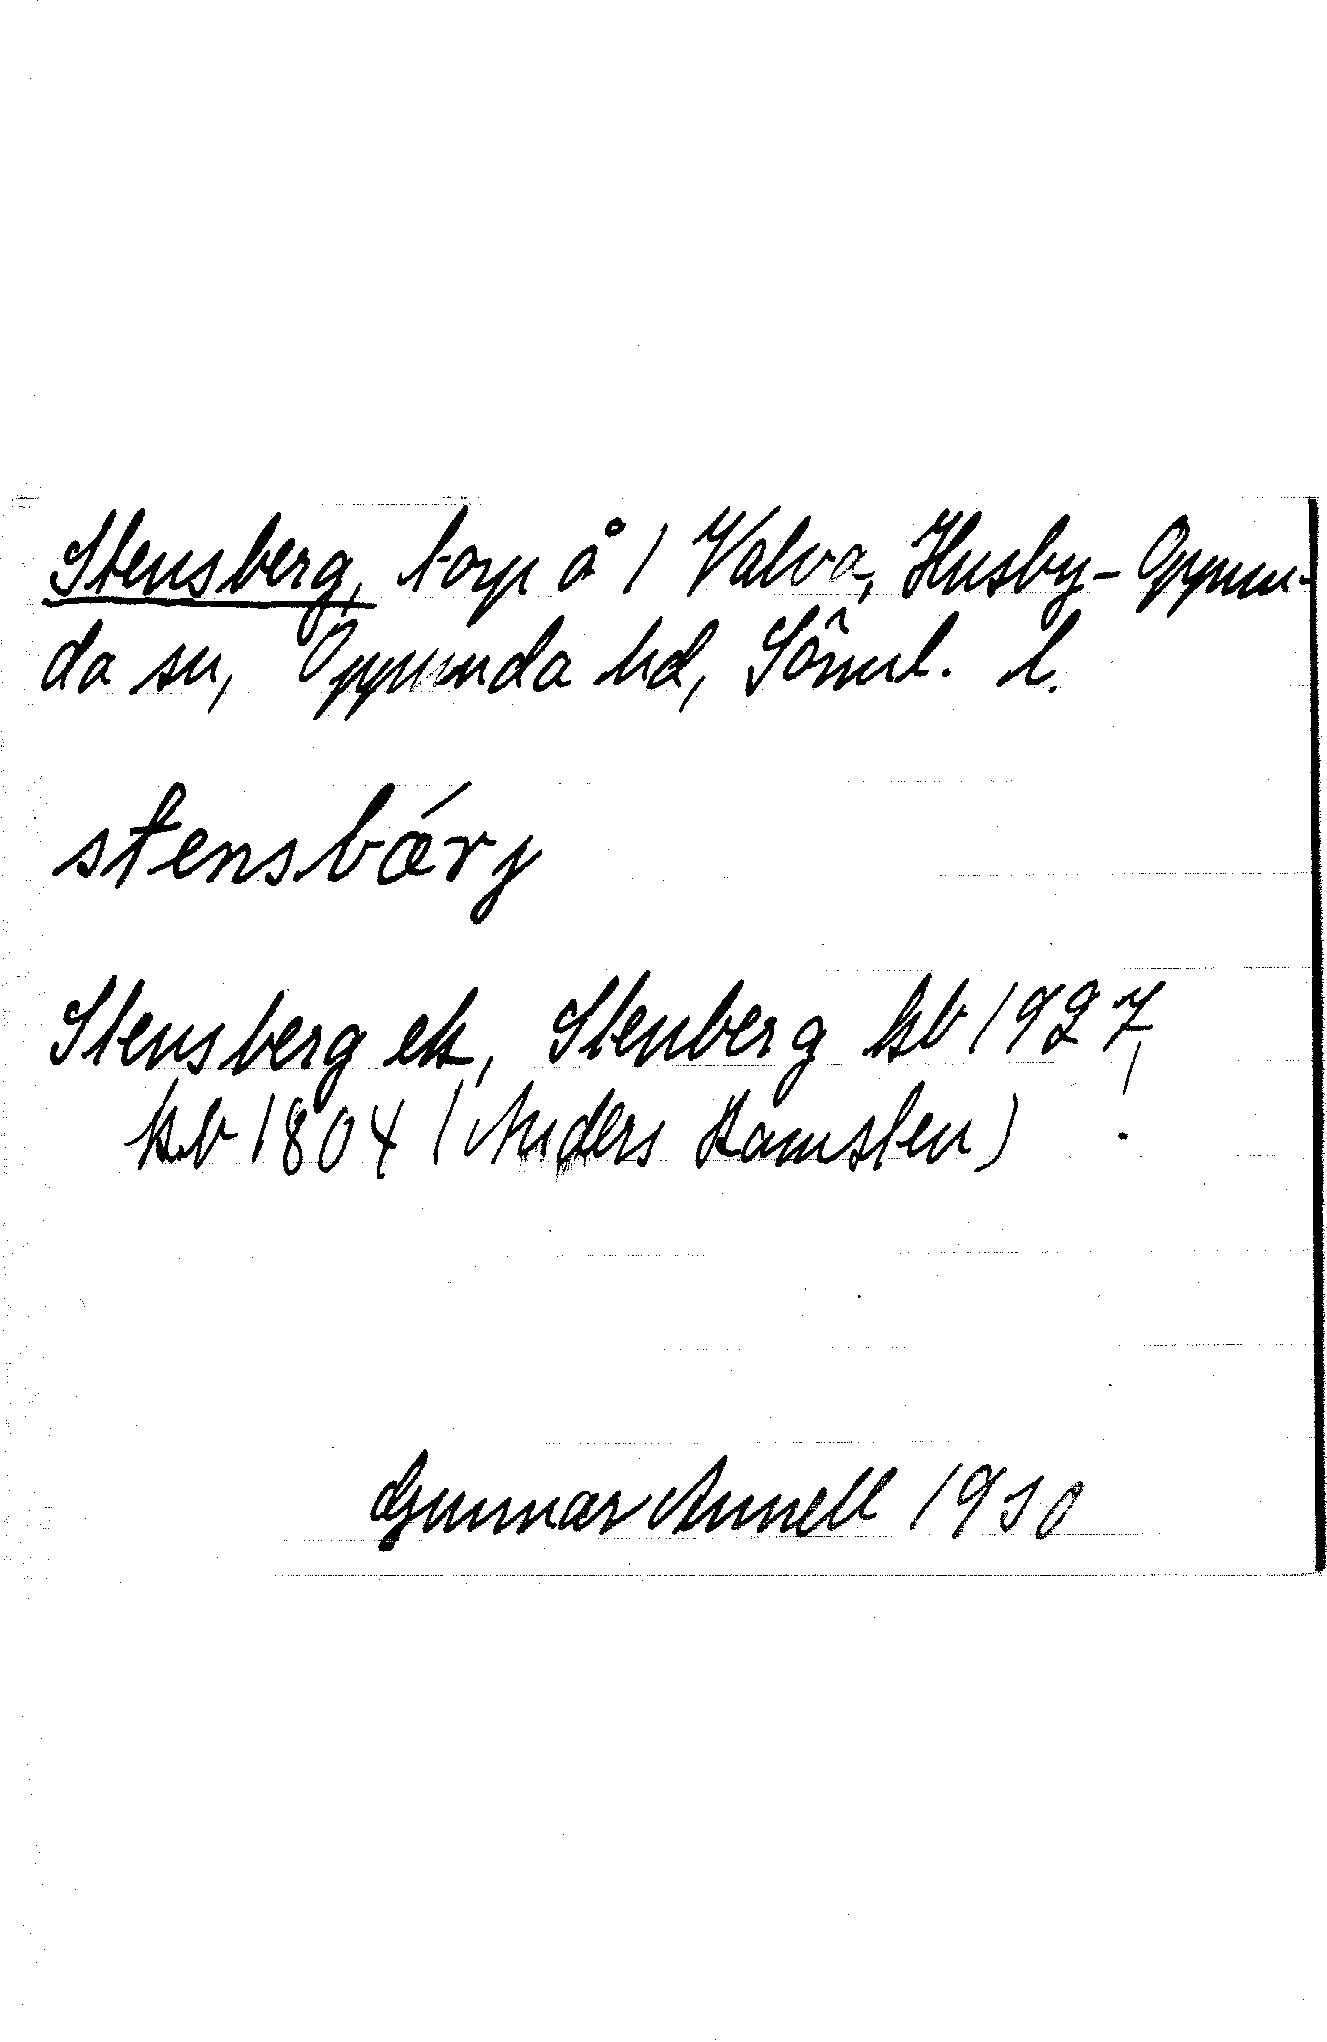 Stensberg, torp å 1 Valva, Husby-Oppun-
da sn, Oppunda hd, Söml. l.
stensbǽrj
Stensberg ek, Stenberg kb 1927,
kb 1804 (Anders Ramsten)
Gunnar Annell 1930